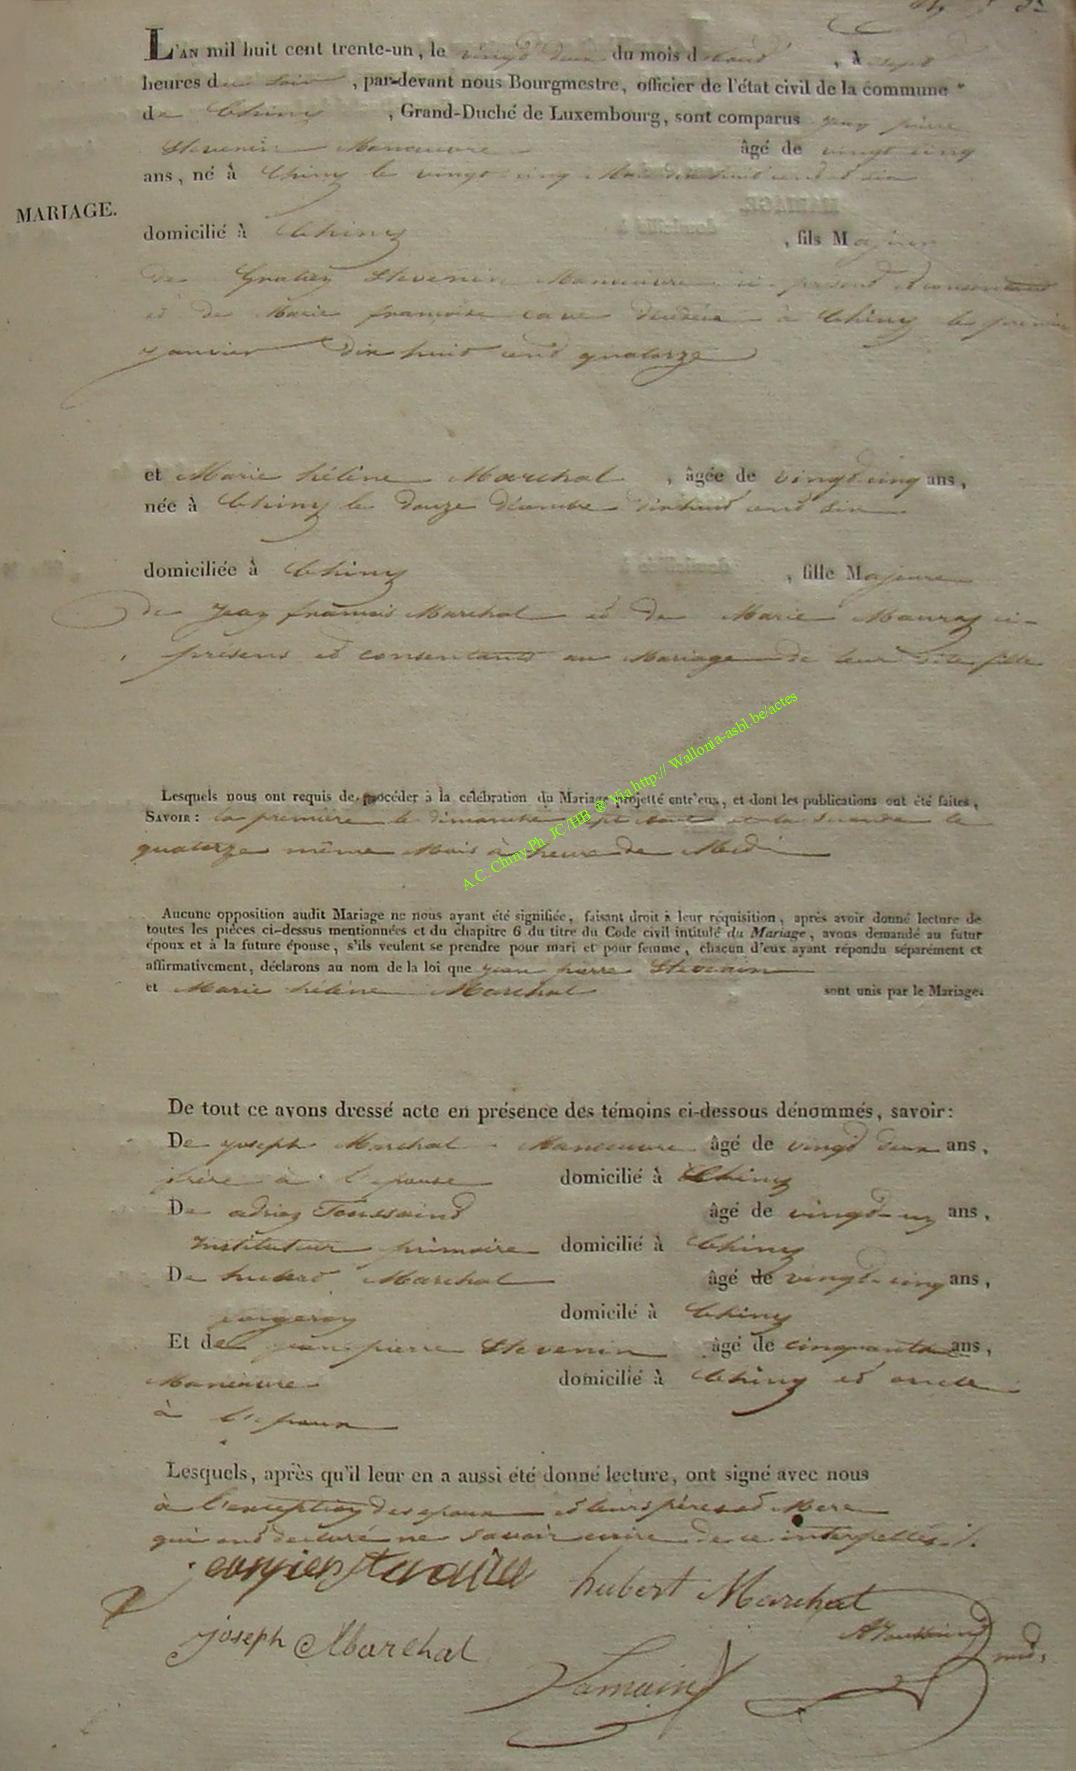 L'AN mil huit cent trente-un, le vingt deux du mois d'aout, à sept
heures du soir, par-devant nous Bourgmestre, officier de l'état civil de la commune
de Chiny, Grand-Duché de Luxembourg, sont comparus jean pierre
Stevenin Manœuvre âgé de vingt cinq
ans, né à Chiny le vingt cinq Mai dix huit cend et six
MARIAGE.
domicilié à Chiny, fils Majeur
de Gratien Stevenin Manœuvre ci présent et consentant
et de Marie françoise décédée à Chiny le premier
janvier dix huit cend quatorze
et Marie hélène Marchal, âgée de vingt cinq ans,
née à Chiny le douze décembre dix huit cend six
domiciliée à Chiny, fille Majeure
de jean françois Marchal et de Marie ci-
présens et consentants au Mariage de leur dite fille
A.C. Chiny Ph. JC /HB @ Via http:// Wallonia-asbl.be/actes
Lesquels nous ont requis de procéder à la célébration du Mariage projetté entr'eux, et dont les publications ont été faites,
SAVOIR: la première le dimanche sept aout et la seconde le
quatorze même Mois à heure de Midi
Aucune opposition audit Mariage ne nous ayant été signifiée, faisant droit à leur réquisition, après avoir donné lecture de
toutes les pièces ci-dessus mentionnées et du chapitre 6 du titre du Code civil intitulé du Mariage, avons demandé au futur
époux et à la future épouse, s'ils veulent se prendre pour mari et pour femme, chacun d'eux ayant répondu séparément et
affirmativement, déclarons au nom de la loi que jean pierre Stevenin
et Marie hélène Marchal sont unis par le Mariage.
De tout ce avons dressé acte en présence des témoins ci-dessous dénommés, savoir:
De joseph Marchal Manœuvre âgé de vingt deux ans,
frère à l'epouse domicilié à Chiny
De adrien Toussaind âgé de vingt-un ans,
instituteur primaire domicilié à Chiny
De hubert Marchal âgé de vingt-cinq ans,
domicilé à Chiny
Et de jean pierre Stevenin âgé de cinquante ans,
Manœuvre domicilié à Chiny et oncle
à l'epoux
Lesquels, après qu'il leur en a aussi été donné lecture, ont signé avec nous
à l'exception des epoux et leurs pères et Mere
qui ond declaré ne savoir ecrire de ce interpellés ./.
hubert Marchal
joseph Marchal
A Toussaind